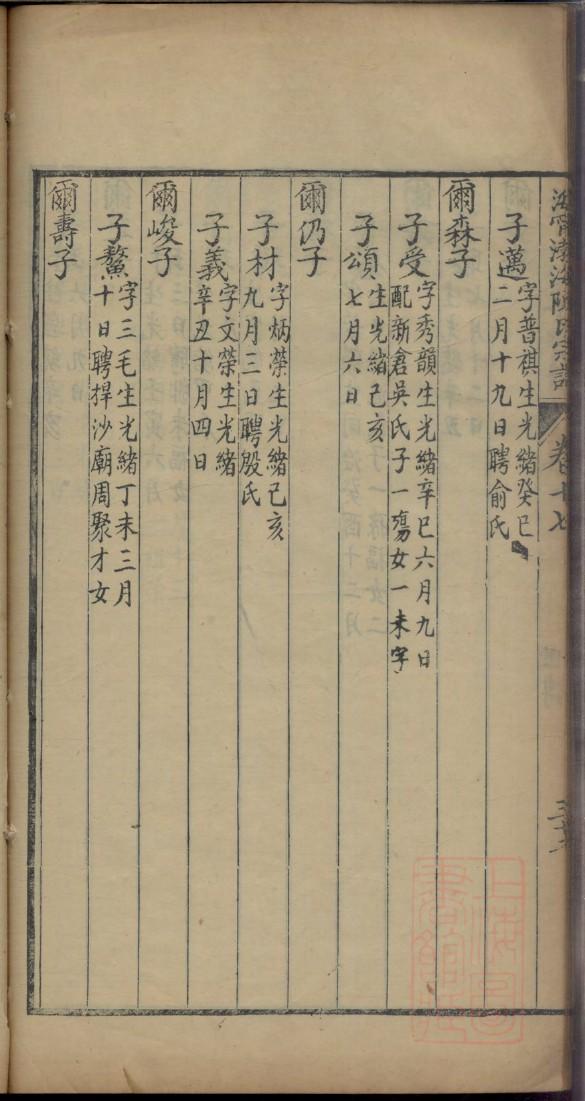 海寧渤海陳氏宗譜
卷十七
子邁 字普祺生光緒癸巳
二月十九日聘俞氏
爾森子
子受 字秀韻生光緒辛巳六月九日
配新倉吳氏子一殤女一未字
子頌 生光緒己亥
七月六日
爾仍子
子材 字炳榮生光緒己亥
九月三日聘殷氏
子義 字文榮生光緒
辛丑十月四日
爾峻子
子鰲 字三毛生光緒丁未三月
十日聘捍沙廟周聚才女
爾壽子